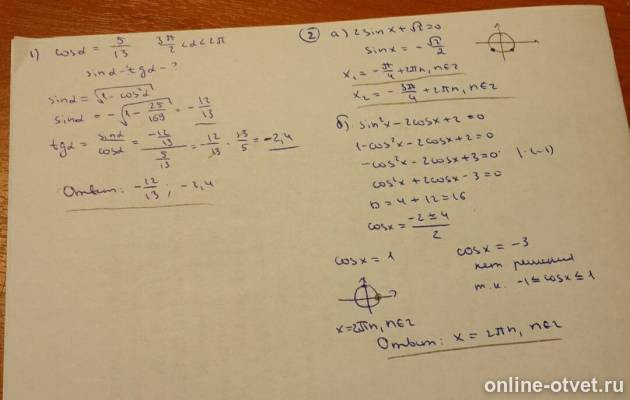 1) cosα = 5/13   3π/2 < α < 2π
sinα - tgα - ?
sinα = √(1 - cos²α)
sinα = -√(1 - 25/169) = -12/13
tgα = sinα/cosα = (-12/13)/(5/13) = -12/13 · 13/5 = -2,4
Ответ: -12/13 ; -2,4
② а) 2sinx + √2 = 0
sinx = -√2/2
x₁ = -π/4 + 2πn, n∈z
x₂ = -3π/4 + 2πn, n∈z
б) sin²x - 2cosx + 2 = 0
1 - cos²x - 2cosx + 2 = 0
-cos²x - 2cosx + 3 = 0   | · (-1)
cos²x + 2cosx - 3 = 0
D = 4 + 12 = 16
cosx = (-2 ± 4)/2
cosx = 1   cosx = -3
нет решения
т.к. -1 ≤ cosx ≤ 1
x = 2πn, n∈z
Ответ: x = 2πn, n∈z
online-otvet.ru